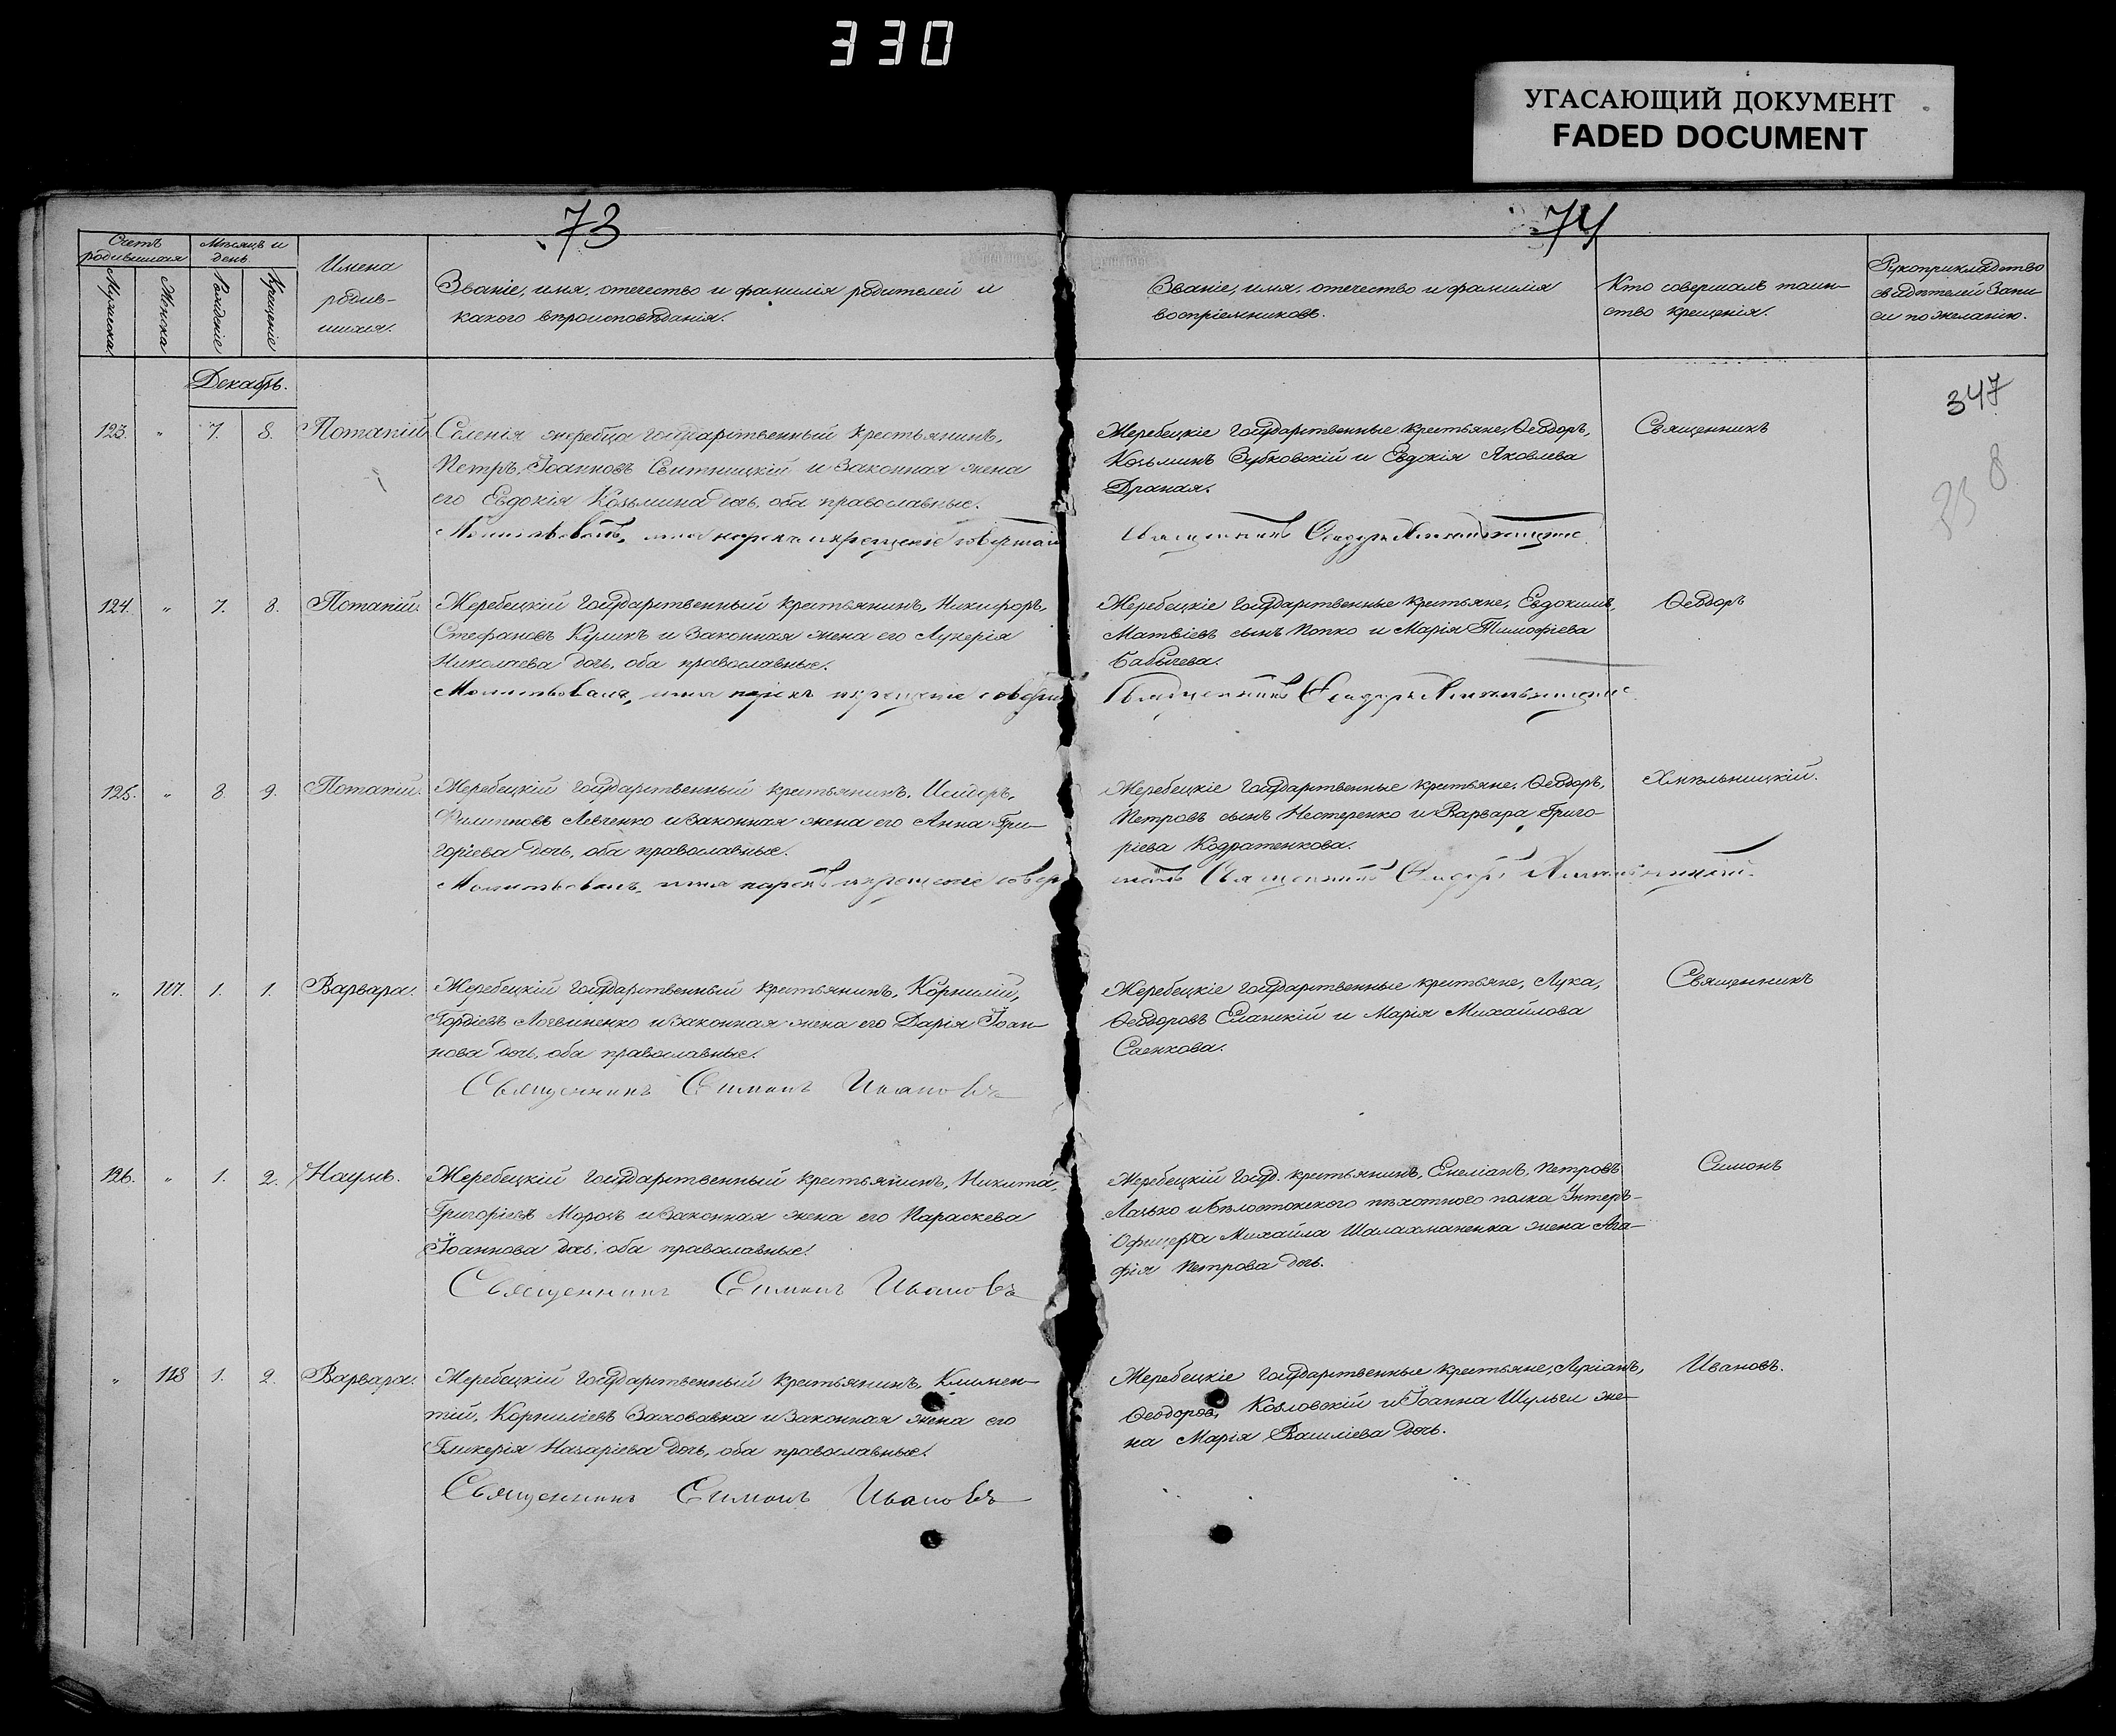 330
УГАСАЮЩИЙ ДОКУМЕНТ
FADED DOCUMENT
73
74
Счетъ родившихся
Мужска
Женска
Мѣсяцъ и день.
Рожденіе
Крещеніе
Имена родив-
шихся.
Званіе, имя, отечество и фамилія родителей и
какого вѣроисповѣданія.
Званіе, имя, отечество и фамилія
воспріемниковъ.
Кто совершалъ таин-
ство крещенія.
Рукоприкладство
свидѣтелей запи-
си по желанію.
Декабрь.
347
338
123. " 7. 8. Потапій
Селенія жеребца государственный крестьянинъ,
Петръ, Іоанновъ Свитницкій и законная жена
его Евдокія Козьмина дочь, оба православные.
Молитвовалъ, имя нарекъ и крещеніе совершалъ
Жеребецкіе государственные крестьяне, Ѳеодоръ,
Козьминъ Зубковскій и Евдокія Яковлева
Драная.
Священникъ Ѳеодоръ Хмѣльницкій
Священникъ
124. " 7. 8. Потапій.
Жеребецкій государственный крестьянинъ, Никифоръ,
Стефановъ и законная жена его Лукерія
Николаева дочь, оба православные.
Молитвовалъ, имя нарекъ и крещеніе соверши
Жеребецкіе государственные крестьяне, Евдокимъ,
Матвіевъ сынъ Попко и Марія Тимофіева
Бабичева.
Священникъ Ѳеодоръ Хмѣльницкій
Ѳеодоръ
125. " 8 9. Потапій.
Жеребецкій государственный крестьянинъ, Исидоръ,
Филипповъ Левченко и законная жена его Анна Гри-
горіева дочь, оба православные.
Молитвовалъ, имя нарекъ и крещеніе совер
Жеребецкіе государственные крестьяне, Ѳеодоръ,
Петровъ сынъ Нестеренко и Варвара Григо-
ріева Кодратенкова.
шалъ Священникъ Ѳеодоръ Хмѣльницкій.
Хмѣльницкій.
" 117. 1. 1. Варвара.
Жеребецкій государственный крестьянинъ, Корнилій,
Гордіевъ Логвиненко и законная жена его Дарія Іоан-
нова дочь, оба православные.
Священникъ Симонъ Ивановъ
Жеребецкіе государственные крестьяне, Лука,
Ѳеодоровъ Еланскій и Марія Михайлова
Саенкова.
Священникъ
126. " 1. 2. Наумъ.
Жеребецкій государственный крестьянинъ, Никита,
Григоріевъ Морозъ и законная жена его Параскева
Іоаннова дочь, оба православные.
Священникъ Симонъ Ивановъ
Жеребецкій госуд. крестьянинъ, Емеліанъ, Петровъ
Лазько и Бѣлостокского пѣхотного полка Унтеръ-
Офицера Михаила Шалахманенка жена Ага-
фія Петрова дочь.
Симонъ
" 118 1. 2. Варвара.
Жеребецкій государственный крестьянинъ, Климен-
тій, Корниліевъ Заховавка и законная жена его
Гликерія Назаріева дочь, оба православные.
Священникъ Симонъ Ивановъ
Жеребецкіе государственные крестьяне, Лукіанъ,
Ѳеодоровъ, Козловскій и Іоанна Шульги же-
на Марія Василіева дочь.
Ивановъ.